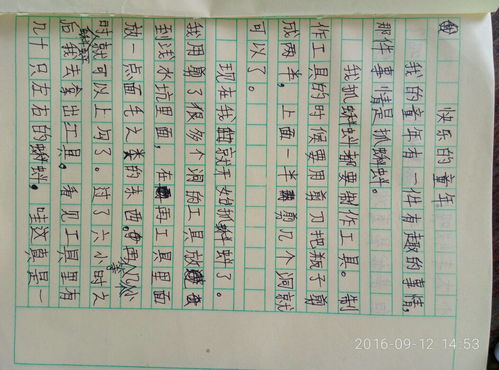 快乐的童年
我的童年有一件有趣的事情,
那件事情是抓蝌蚪。
我抓蝌蚪都要制作工具。制
作工具的时候要用剪刀把瓶子剪
成两半,上面一半剪几个洞就
可以了。
现在我就开始抓蝌蚪了。
我用剪了很多个洞的工具放
到浅水坑里面,在再工具里面
放一点面毛之类的东西,小
时就可以上网了。过了六小时之
后我去拿出工具。看见工具里有
几十只左右的蝌蚪,哇这真是一
2016-09-12 14:53